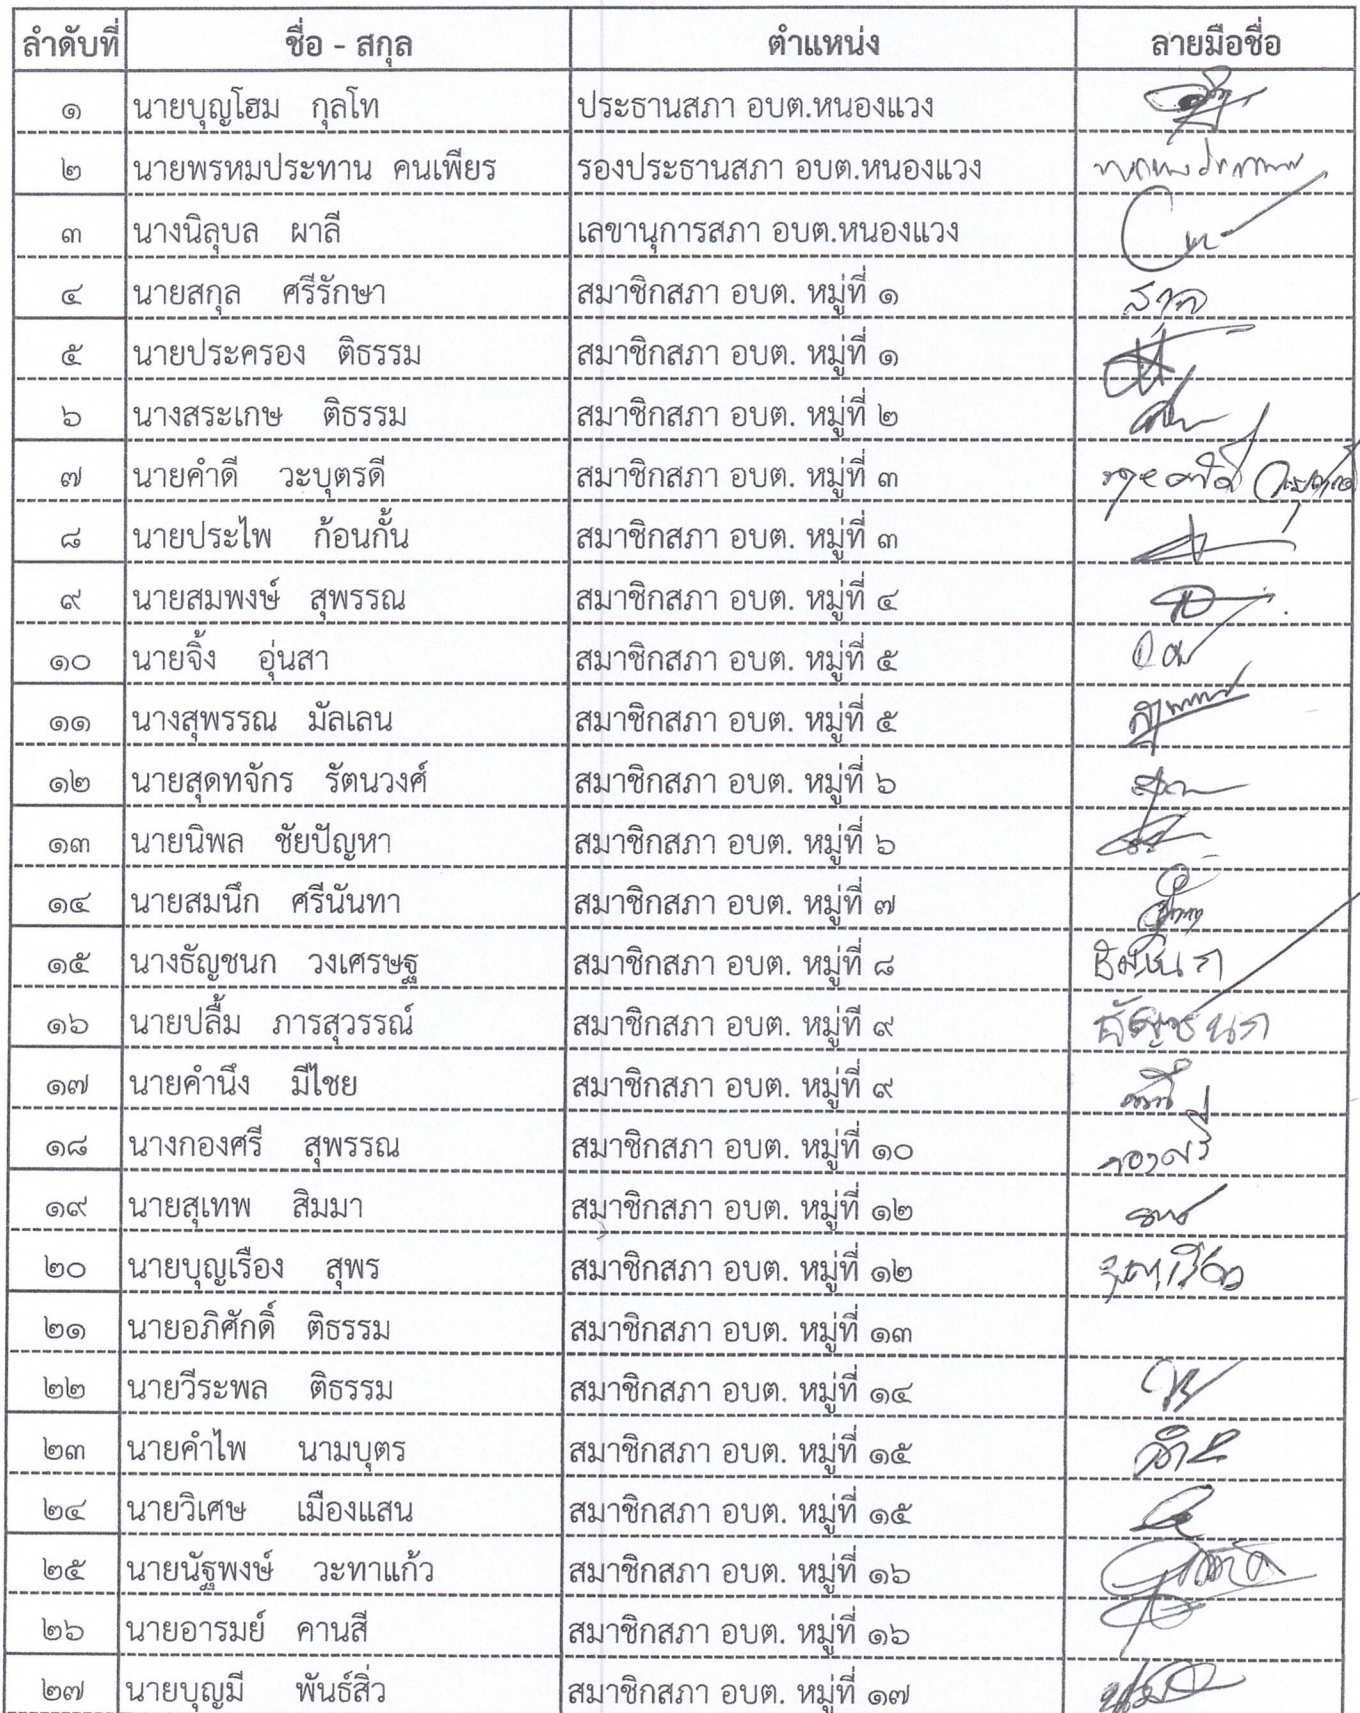 ลำดับที่ ชื่อ - สกุล ตำแหน่ง ลายมือชื่อ
๑ นายบุญโฮม กุลโท ประธานสภา อบต.หนองแวง
๒ นายพรหมประทาน คนเพียร รองประธานสภา อบต.หนองแวง
๓ นางนิลุบล ผาลี เลขานุการสภา อบต.หนองแวง
๔ นายสกุล ศรีรักษา สมาชิกสภา อบต. หมู่ที่ ๑
๕ นายประครอง ติธรรม สมาชิกสภา อบต. หมู่ที่ ๑
๖ นางสระเกษ ติธรรม สมาชิกสภา อบต. หมู่ที่ ๒
๗ นายคำดี วะบุตรดี สมาชิกสภา อบต. หมู่ที่ ๓
๘ นายประไพ ก้อนกั้น สมาชิกสภา อบต. หมู่ที่ ๓
๙ นายสมพงษ์ สุพรรณ สมาชิกสภา อบต. หมู่ที่ ๔
๑๐ นายจิ้ง อุ่นสา สมาชิกสภา อบต. หมู่ที่ ๕
๑๑ นางสุพรรณ มัลเลน สมาชิกสภา อบต. หมู่ที่ ๕
๑๒ นายสุดทจักร รัตนวงศ์ สมาชิกสภา อบต. หมู่ที่ ๖
๑๓ นายนิพล ชัยปัญหา สมาชิกสภา อบต. หมู่ที่ ๖
๑๔ นายสมนึก ศรีนันทา สมาชิกสภา อบต. หมู่ที่ ๗
๑๕ นางธัญชนก วงเศรษฐ สมาชิกสภา อบต. หมู่ที่ ๘
๑๖ นายปลื้ม ภารสุวรรณ์ สมาชิกสภา อบต. หมู่ที ๙ ธัญชนก
๑๗ นายคำนึง มีไชย สมาชิกสภา อบต. หมู่ที่ ๙
๑๘ นางกองศรี สุพรรณ สมาชิกสภา อบต. หมู่ที่ ๑๐ กองศรี
๑๙ นายสุเทพ สิมมา สมาชิกสภา อบต. หมู่ที่ ๑๒
๒๐ นายบุญเรือง สุพร สมาชิกสภา อบต. หมู่ที่ ๑๒
๒๑ นายอภิศักดิ์ ติธรรม สมาชิกสภา อบต. หมู่ที่ ๑๓
๒๒ นายวีระพล ติธรรม สมาชิกสภา อบต. หมู่ที่ ๑๔
๒๓ นายคำไพ นามบุตร สมาชิกสภา อบต. หมู่ที่ ๑๕
๒๔ นายวิเศษ เมืองแสน สมาชิกสภา อบต. หมู่ที่ ๑๕
๒๕ นายนัฐพงษ์ วะทาแก้ว สมาชิกสภา อบต. หมู่ที่ ๑๖
๒๖ นายอารมย์ คานสี สมาชิกสภา อบต. หมู่ที่ ๑๖
๒๗ นายบุญมี พันธ์สิ่ว สมาชิกสภา อบต. หมู่ที่ ๑๗